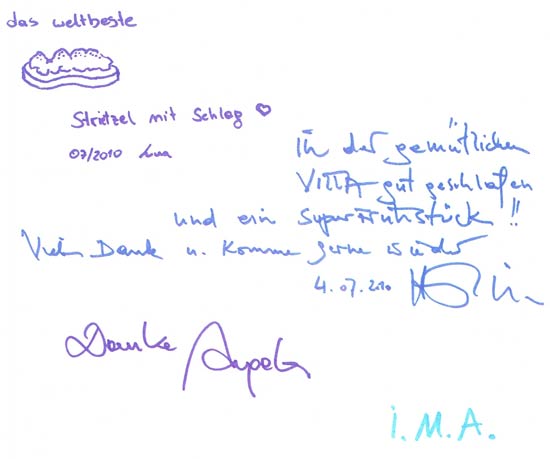 das weltbeste
Strietzel mit Schlag ♡
07/2010
In der gemütlichen
VILLA gut geschlafen
und ein Superfrühstück !!
Vielen Dank u. Komme gerne wieder
4.07.2010
Danke
I.M.A.